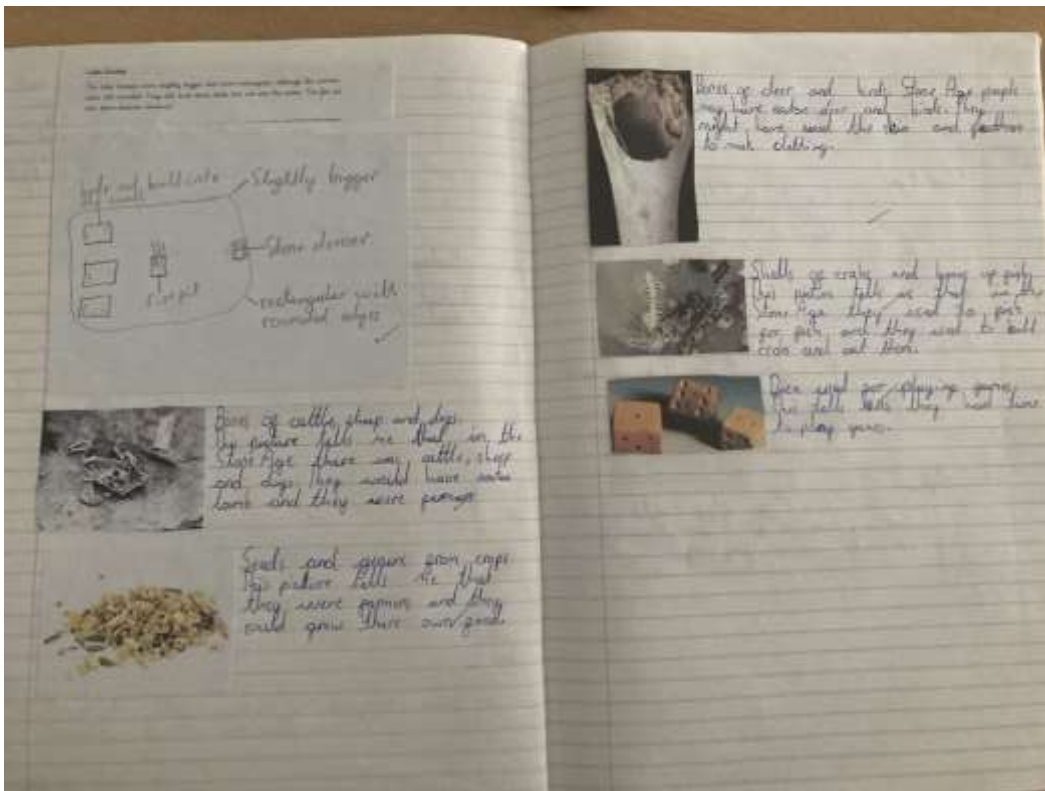 Later Houses
The later houses were slightly bigger and more rectangular although the corners
were still rounded.
build into
Slightly bigger
Stone dresser
fire pit
rectangular with
rounded edges
Bones of cattle, sheep and dogs.
This picture tells me that in the
Stone Age there was cattle, sheep
and dogs they would have eaten
lamb and they were
Seeds and from crops
This picture tells me that
they were farmers and they
could grow there own food.
Bones of deer and birds Stone Age people
may have eaten deer and birds. They
might have used the and feathers
to make clothing.
Shells of crabs and bones of fish,
this picture tells us that in the
Stone Age they used to fish
for fish and they used to
crabs and eat them.
Dice used for playing games,
This tells they had time
to play games.